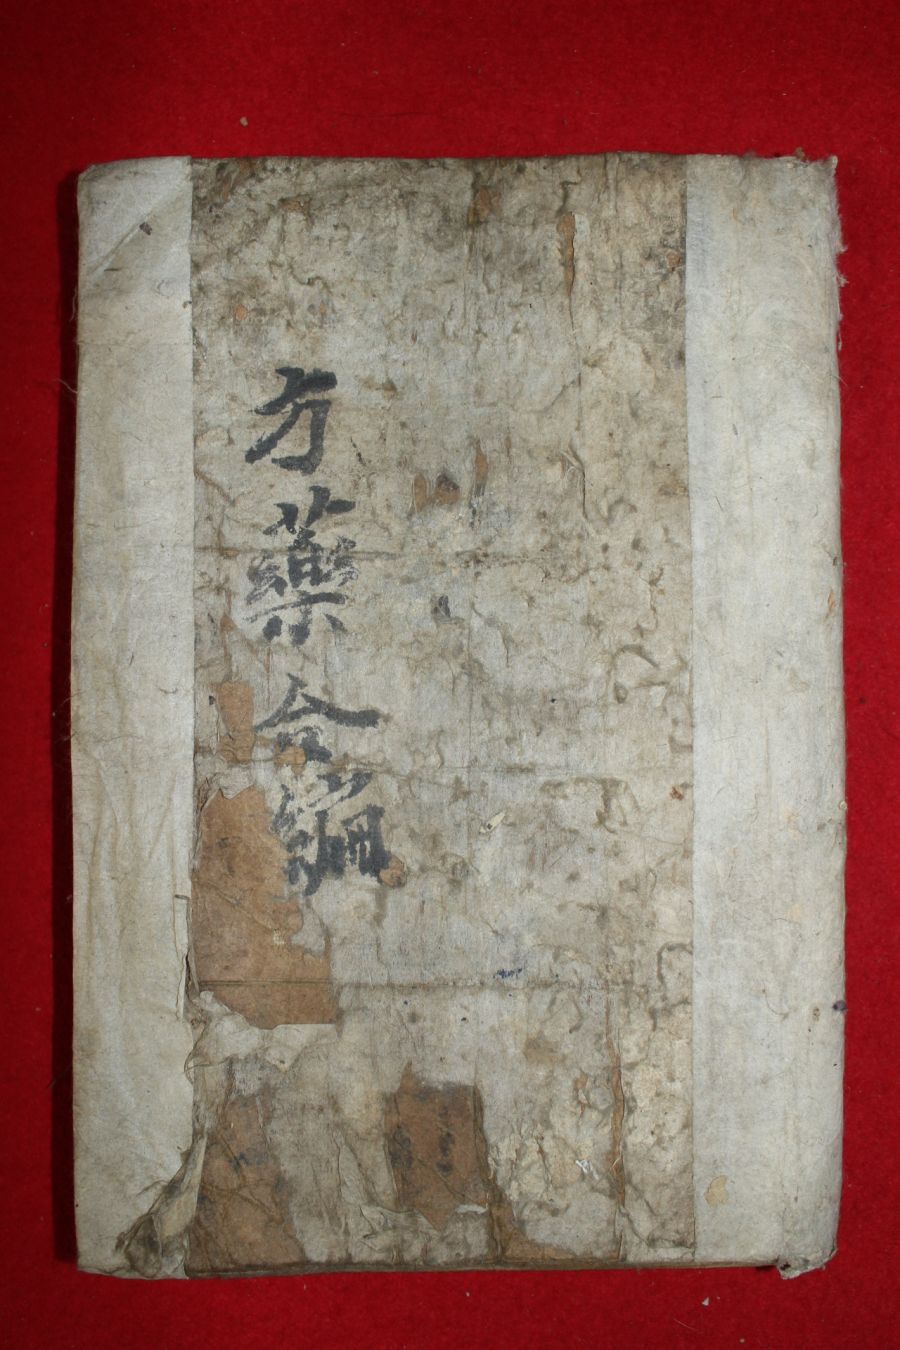 方藥合編